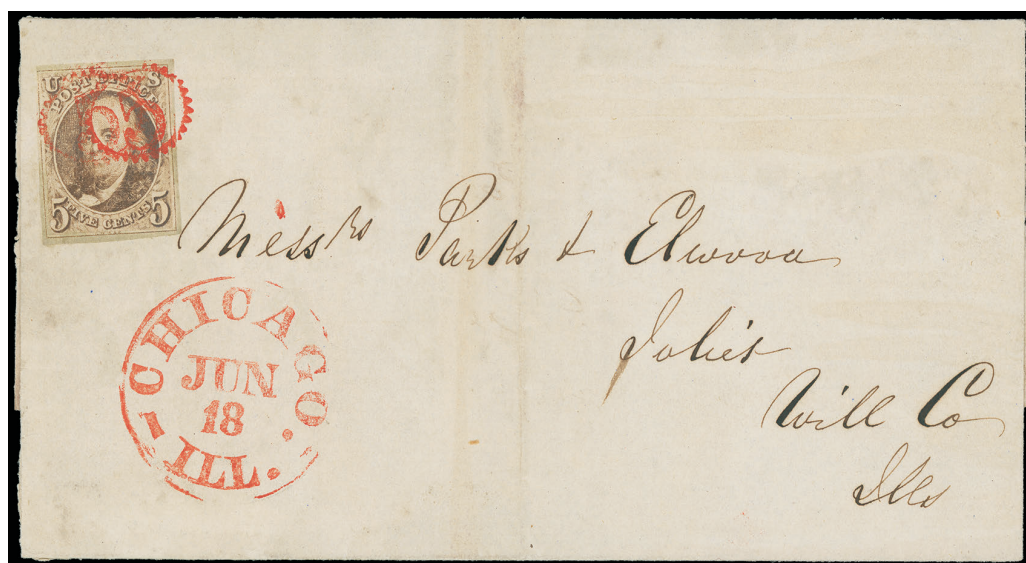 U S
POST OFFICE
5 FIVE CENTS 5
5
Messrs Parks & Elwood
Joliet
Will Co
Ills
CHICAGO.
JUN
18
ILL.